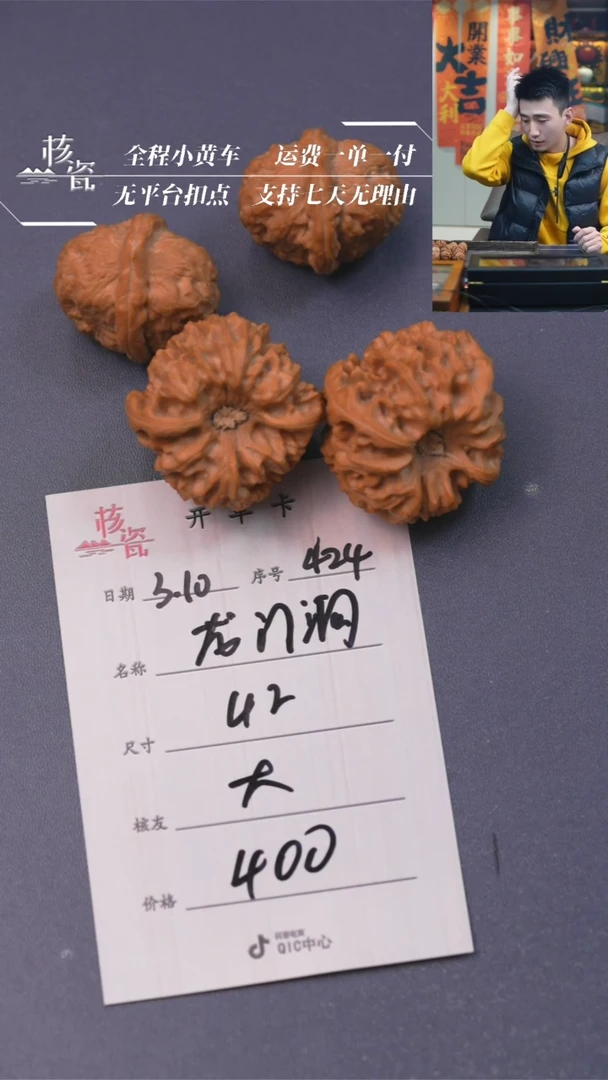 核瓷
全程小黄车 运费一单一付
无平台扣点 支持七天无理由
開業
大吉
大利
事事如
財
核瓷
开单卡
日期 3.10 序号 424
名称 龙门涧
尺寸 42
核友 大
价格 400
抖音电商
QIC中心